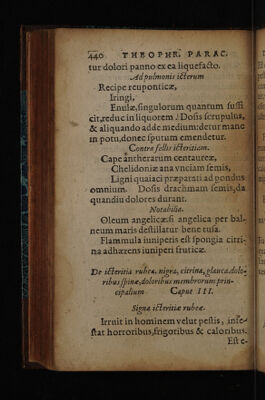 440 THEOPHR. PARAC.
tur dolori panno ex ea liquefacto.
Ad pulmonis icterum
Recipe reuponticæ,
Iringi,
Enulæ, singulorum quantum suffi
cit, reduc in liquorem. Dosis scrupulus,
& aliquando adde medium: detur mane
in potu, donec sputum emendetur.
Contra fellis icteritiam.
Cape antherarum centaureæ,
Chelidoniæ ana vnciam semis,
Ligni quaiaci præparati ad pondus
omnium. Dosis drachmam semis, da
quandiu dolores durant.
Notabilia.
Oleum angelicæ: si angelica per bal-
neum maris destillatur bene tusa.
Flammula iuniperis est spongia citri-
na adhærens iuniperi fruticæ.
De icteritia rubea, nigra, citrina, glauca, dolo-
ribus spinæ, doloribus membrorum prin-
cipalium Caput III.
Signa icteritiæ rubeæ.
Irruit in hominem velut pestis, infe-
stat horroribus, frigoribus & caloribus.
Est e-